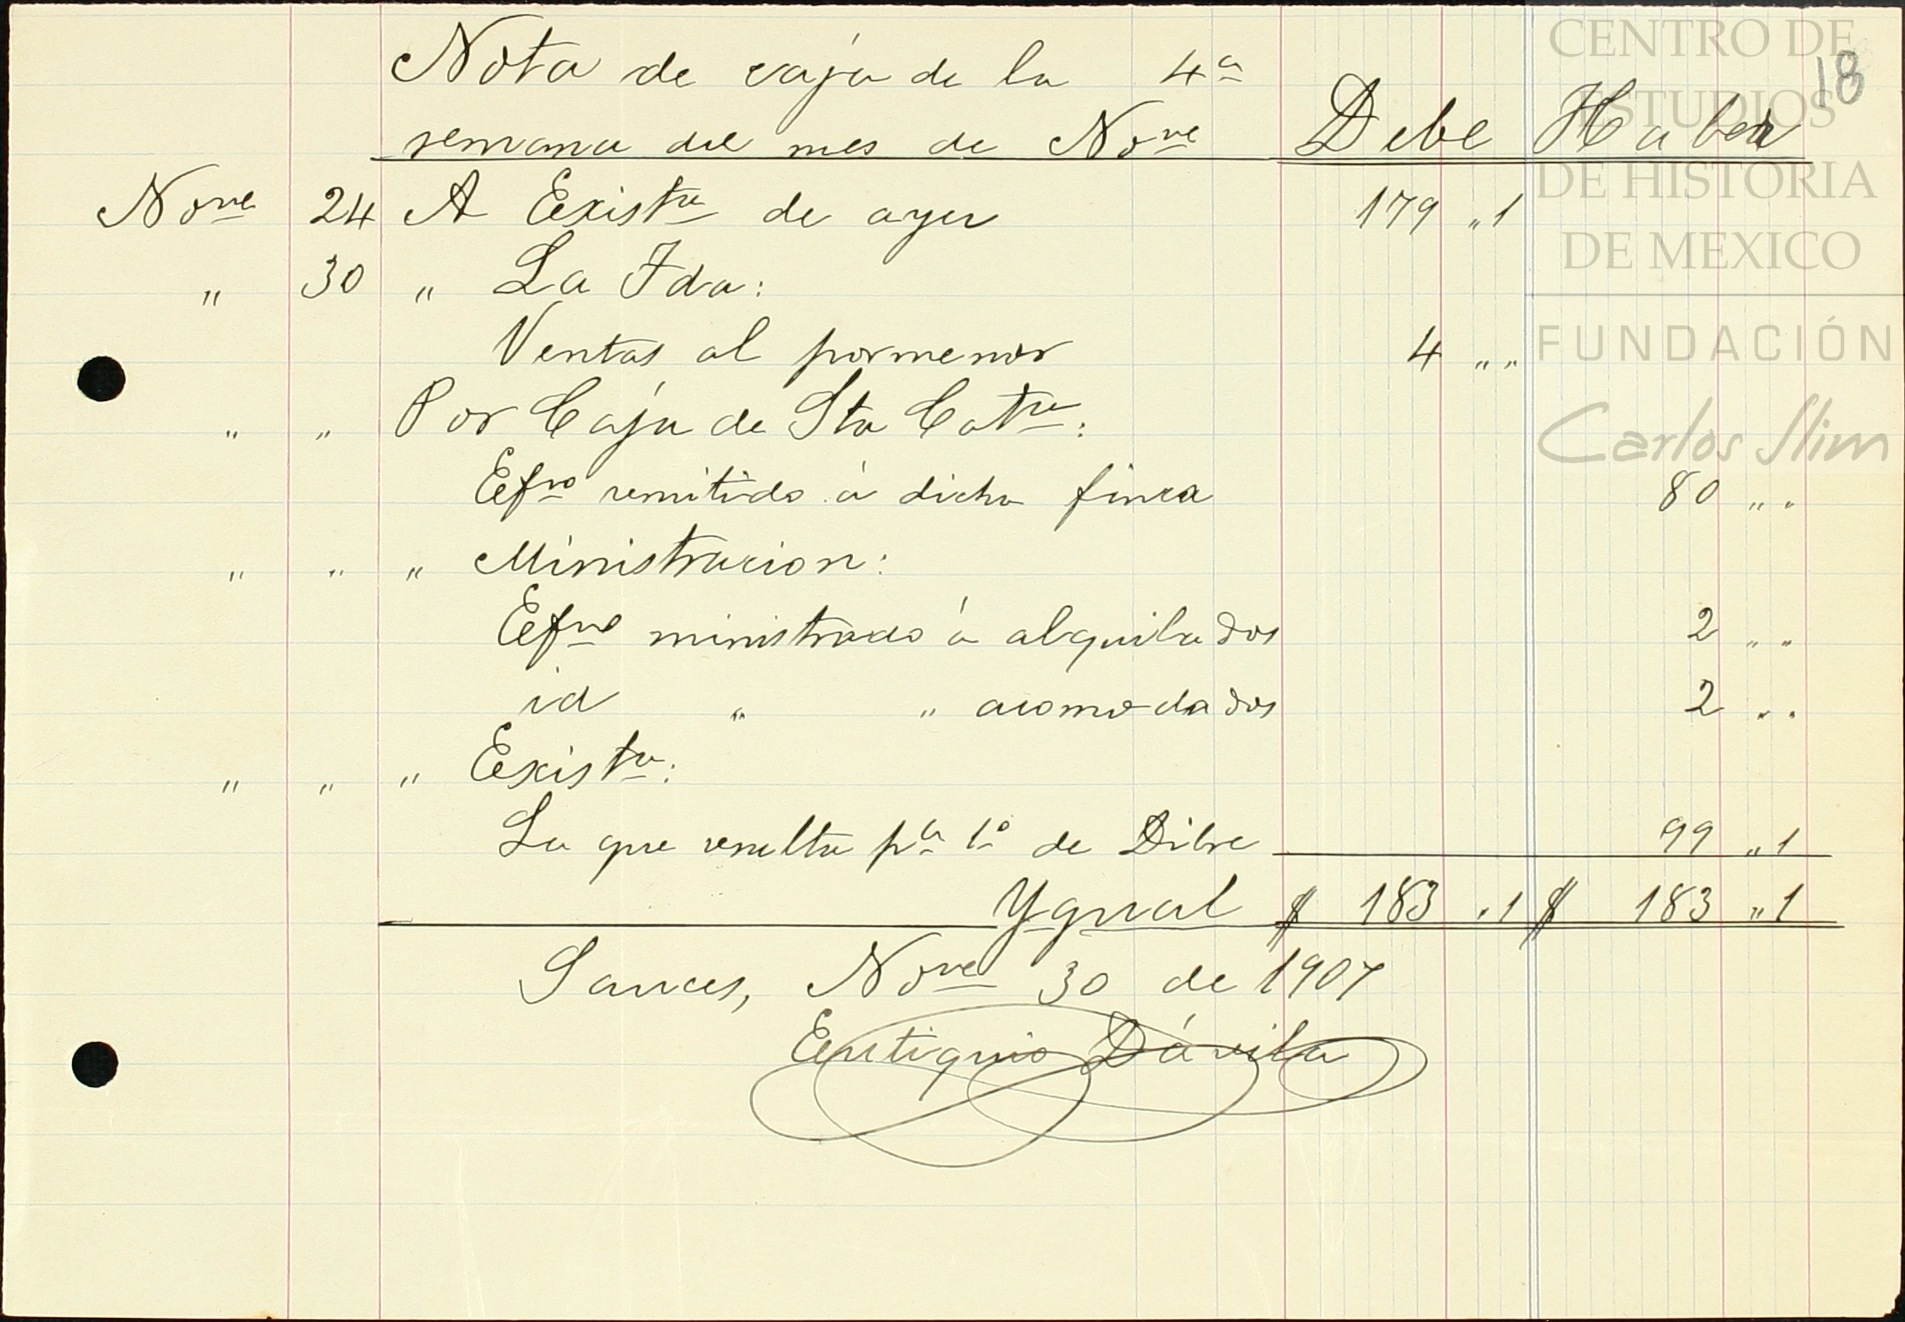 CENTRO DE
ESTUDIOS
DE HISTORIA
DE MEXICO
FUNDACIÓN
Carlos Slim
18
Nota de caja de la 4ª
semana del mes de Nove Debe Haber
Nove 24 A Existra de ayer 179 „1
„ 30 „ La Tda:
Ventas al pormenor 4 „„
„ „ Por Caja de Sta Catra:
Efvo remitido á dicha finca 80 „„
„ „ „ Ministracion:
Efvo ministrado á alquilados 2 „„
id „ „ acomodados 2 „„
„ „ „ Existra:
La que resulta pª 1º de Dibre 99 „1
Ygual $ 183 „1 $ 183 „1
Sauces, Nove 30 de 1907
Eutiquio Dávila